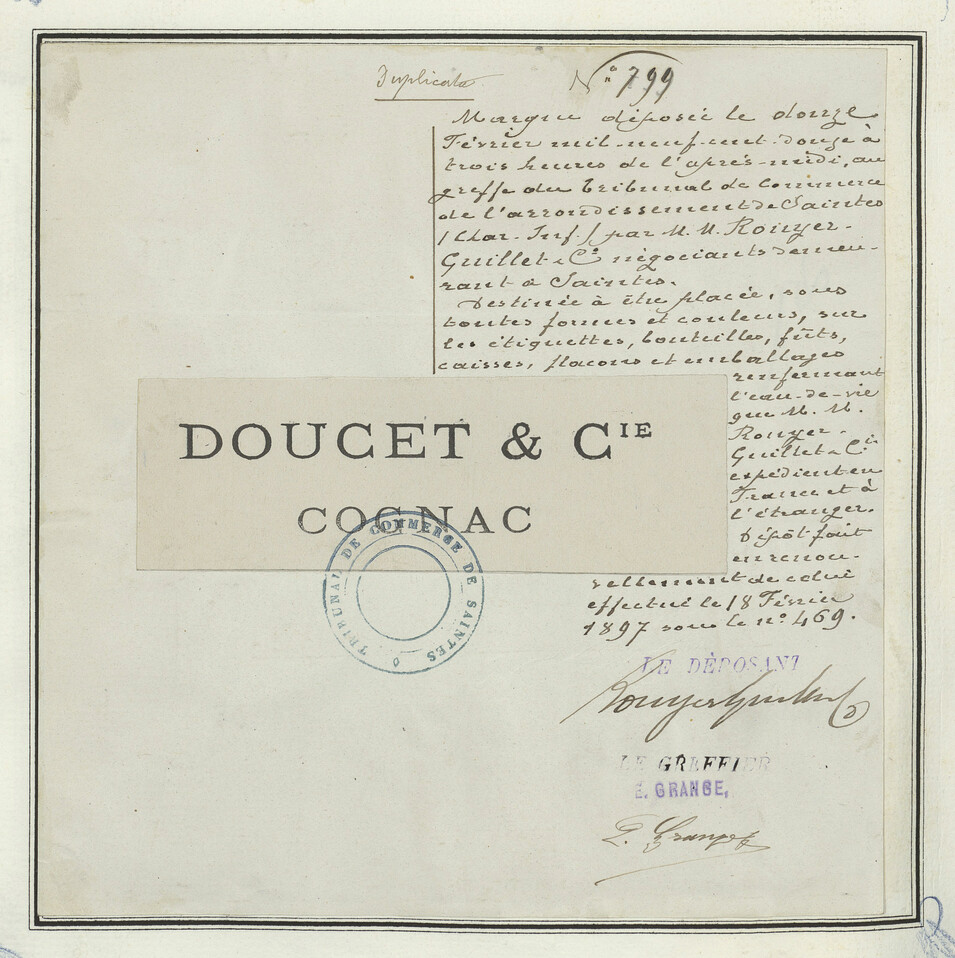 Duplicata
N° 799
Marque déposée le douze
Février mil-neuf-cent-douze à
trois heures de l'après-midi, au
greffe du Tribunal de Commerce
de l'arrondissement de Saintes
(Char. Inf.) par M. M. Rouyer-
Guillet & Cie négociants demeu-
rant à Saintes.
Destinée à être placée, sous
toutes formes et couleurs, sur
les étiquettes, bouteilles, fûts,
caisses, flacons et emballages
renfermant
l'eau-de-vie
que M. M.
Rouyer-
Guillet & Cie
expédient en
France et à
l'étranger.
Dépôt fait
en renou-
vellement de celui
effectué le 18 Février
1897 sous le n° 469.
DOUCET & CIE
COGNAC
TRIBUNAL DE COMMERCE DE SAINTES
LE DÉPOSANT
Rouyer Guillet
LE GREFFIER
E. GRANGE,
E. Grange